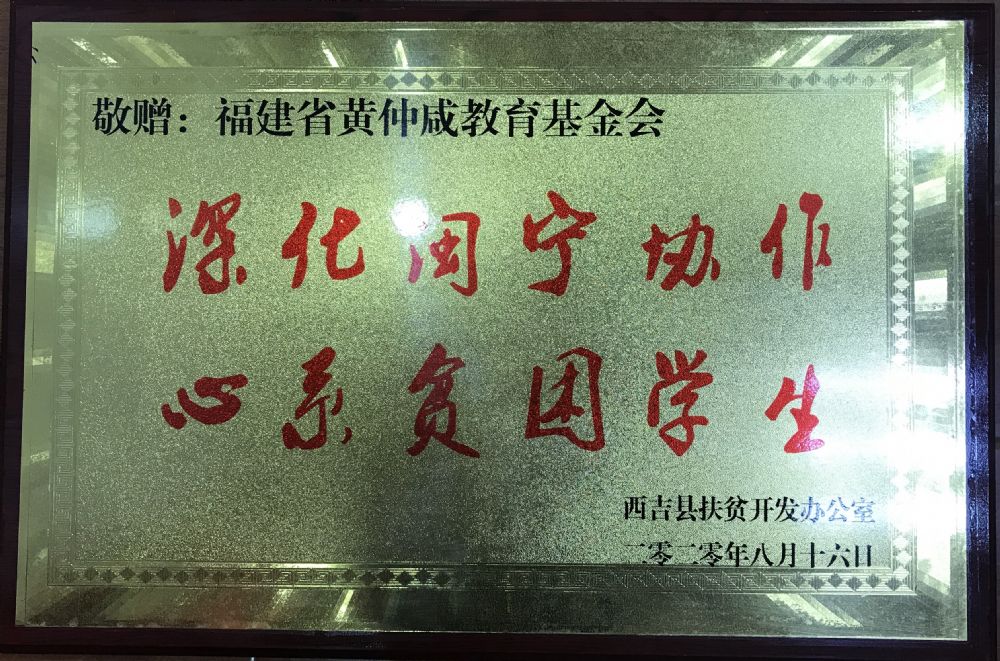 敬赠：福建省黄仲咸教育基金会
深化闽宁协作
心系贫困学生
西吉县扶贫开发办公室
二零二零年八月十六日